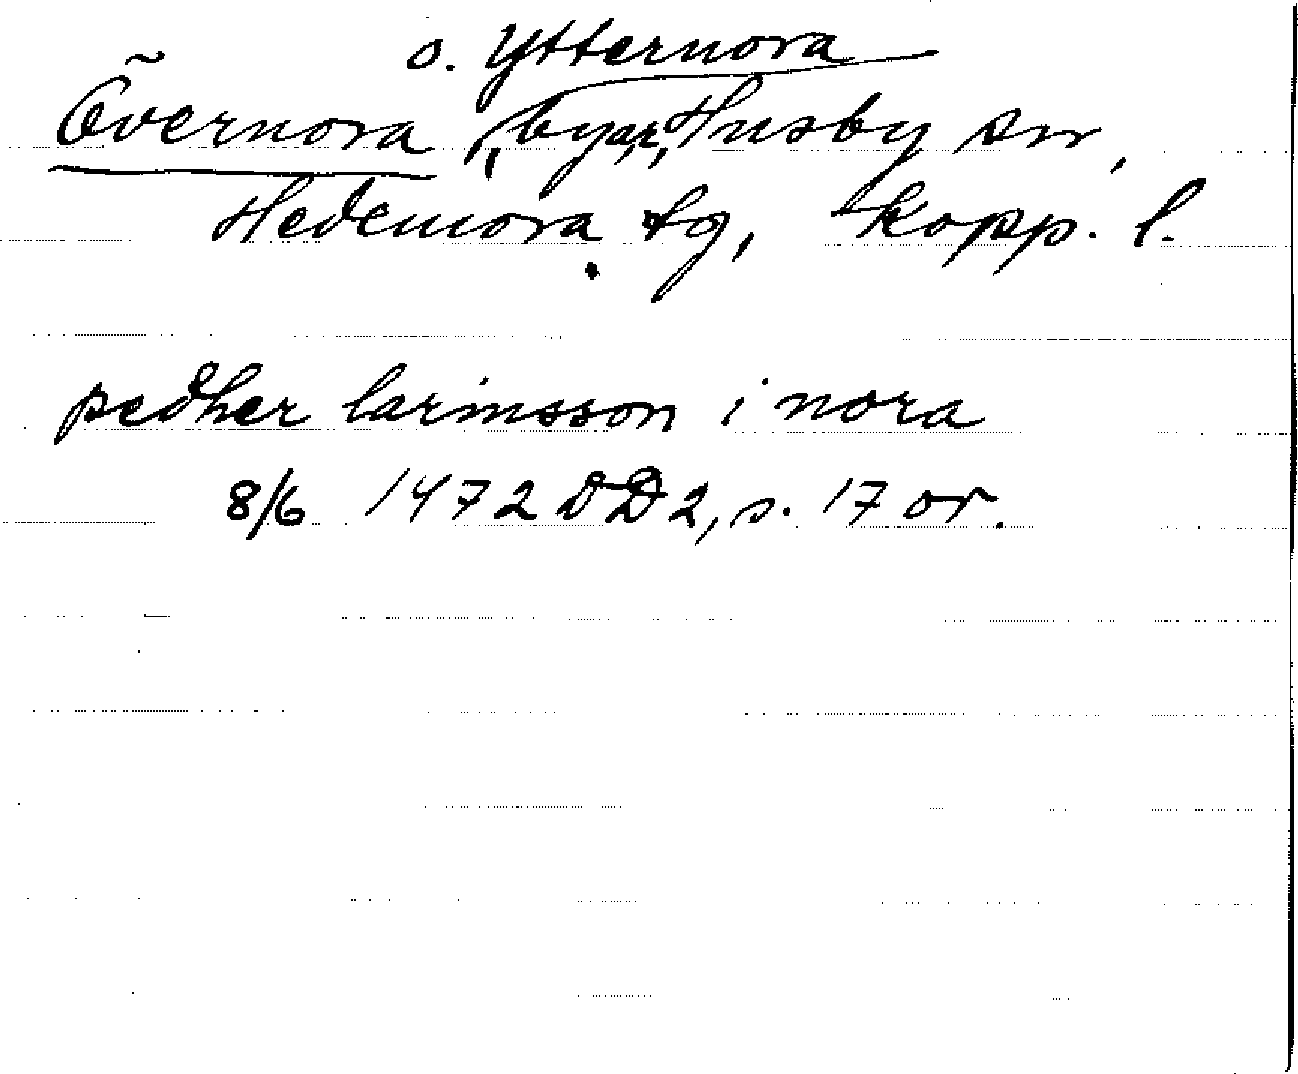 o. Ytternora
Övernora, byar, Husby sn,
Hedemora tg, Kopp. l.
pedher larinsson i nora
8/6 1472 DD2, s. 17 or.